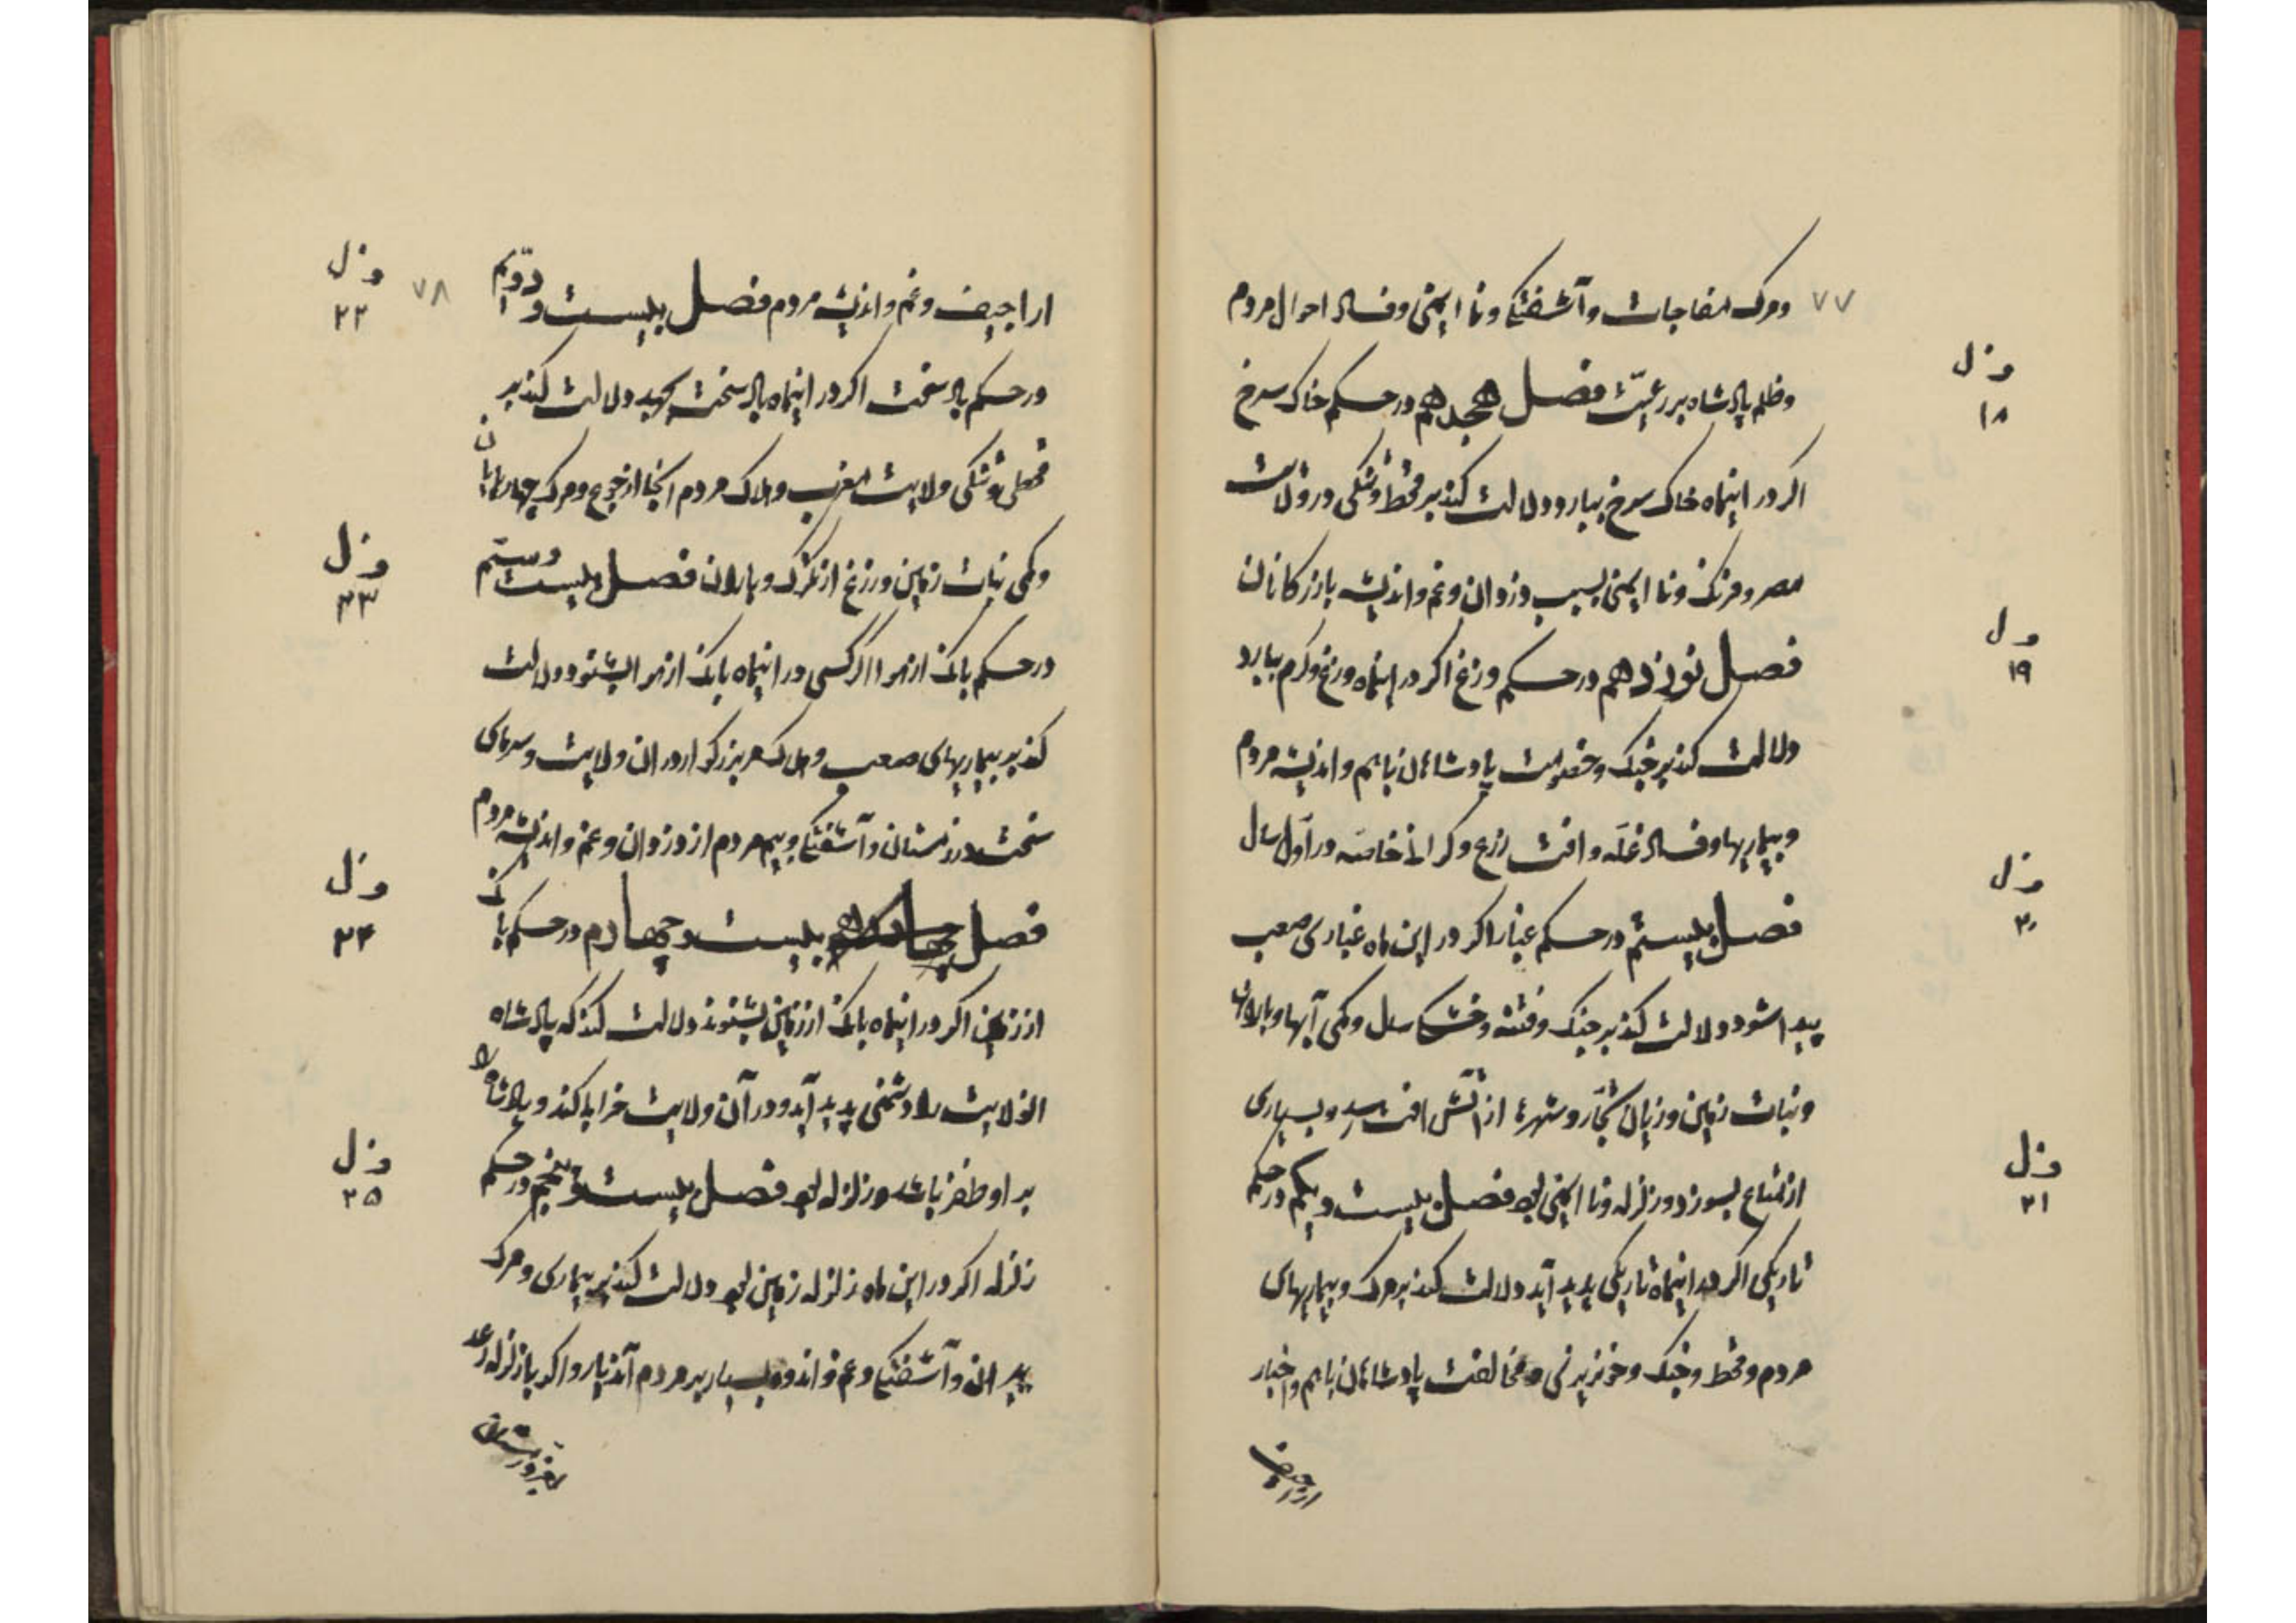 ۷۷
ومرک مفاجات وآشفتکی ونا ایمنی وفساد احوال مردم
وظلم پادشاه بر رعیت فصل هجدهم در حکم خاک سرخ
ف ل ۱۸
اکر در اینماه خاک سرخ ببارد دلالت کند بر قحط وتنکی در ولایت
مصر وفرنک ونا ایمنی بسبب دزدان وغم واندیشه بازرکانان
فصل نوزدهم در حکم وزغ اکر در اینماه وزغ وکرم ببارد
ف ل ۱۹
دلالت کند بر جنک وخصومت پادشاهان باهم واندیشه مردم
وبیماریها وفساد غله وافت زرع وکرانی خاصه در اول سال
فصل بیستم در حکم غبار اکر در این ماه غباری صعب
ف ل ۲۰
پیدا شود دلالت کند بر جنک وفتنه وخشکی سال وکمی آبها وبارانها
ونبات زمین وزیان تجار وشهرها از آتش افت رسد وبسیاری
از متاع بسوزد وزلزله ونا ایمنی بود فصل بیست ویکم در حکم
ف ل ۲۱
تاریکی اکر در اینماه تاریکی پدید آید دلالت کند بر مرک وبیماریهای
مردم وقحط وجنک وخونریزی ومخالفت پادشاهان باهم واخبار
اراجیف
۷۸
اراجیف وغم واندیشه مردم فصل بیست ودویم
ف ل ۲۲
در حکم باد سخت اکر در اینماه باد سخت بجهد دلالت کند بر
قحطی وتنکی ولایت مغرب وهلاک مردم انجا از جوع ومرک چهارپایان
وکمی نبات زمین وزرع از تکرک وباران فصل بیست وسیم
ف ل ۲۳
در حکم بانک از هوا اکر کسی در اینماه بانک از هوا بشنود دلالت
کند بر بیماریهای صعب وهلاک مر بزرکی را در ان ولایت وسرمای
سخت در زمستان وآشفتکی وبیم مردم از دزدان وغم واندیشه مردم
فصل بیست وچهارم در حکم بانک
ف ل ۲۴
از زمین اکر در اینماه بانک از زمین بشنوند دلالت کند که پادشاه
انولایت را دشمنی پدید آید ودر آن ولایت خرابی کند وپادشاه را
بر او ظفر باشد وزلزله بود فصل بیست وپنجم در حکم
ف ل ۲۵
زلزله اکر در این ماه زلزله زمین بود دلالت کند بر بیماری ومرک
پیران وآشفتکی وغم واندوه بسیار بر مردم آندیار واکر با زلزله رعد